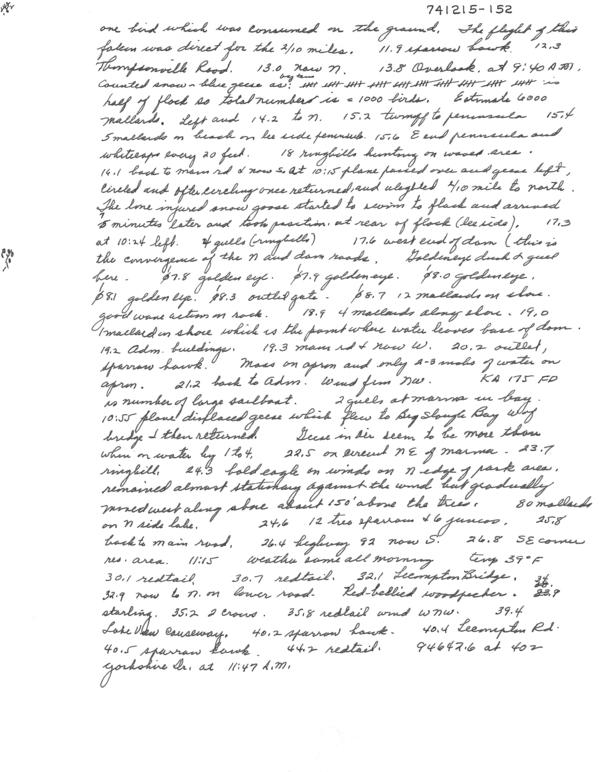 741215-152
one bird which was consumed on the ground. The flight of this
falcon was direct for the 2/10 miles. 11.9 sparrow hawk. 12.3
Thompsonville Road. 13.0 now N. 13.8 Overlook, at 9:40 A.M.
Counted snow - blue geese as: is
half of flock so total numbers is = 1000 birds. Estimate 6000
mallards. Left and 14.2 to N. 15.2 turnoff to peninsula 15.4
5 mallards on beach on lee side peninsula. 15.6 E end peninsula and
whitecaps every 20 feet. 18 ringbills hunting on waved area.
16.1 back to main rd & now S. At 10:15 plane passed over and geese left,
circled and after circling once returned, and alighted 4/10 mile to north.
The lone injured snow goose started to swim to flock and arrived
5 minutes later and took position at rear of flock (lee side). 17.3
at 10:24 left. 4 gulls (-ringbills) 17.6 west end of dam (this is
the convergence of the N and dam roads. Goldeneye duck & gull
here. 17.8 golden eye. 17.9 goldeneye. 18.0 goldeneye.
18.1 golden eye. 18.3 outlet gate. 18.7 12 mallards on shore.
good wave action on rock. 18.9 4 mallards along shore. 19.0
1 mallard on shore which is the point where water leaves base of dam.
19.2 Adm. buildings. 19.3 main rd & now W. 20.2 outlet,
sparrow hawk. Moss on apron and only 2-3 inches of water on
apron. 21.2 back to Adm. Wind firm NW. KA 175 FD
is number of large sailboat. 2 gulls at marina in bay.
10:55 plane displaced geese which flew to Big Slough Bay W of
bridge & then returned. Geese in air seem to be more than
when on water by 1 to 4. 22.5 on NE of marina. 23.7
ringbill. 24.3 bald eagle on winds on N edge of park area.
remained almost stationary against the wind but gradually
moved west along shore about 150' above the trees. 80 mallards
on N side lake. 24.6 12 tree sparrow & 6 juncos. 25.8
back to main road. 26.4 highway 92 now S. 26.8 SE corner
res. area. 11:15 weather same all morning temp 39°F
30.1 redtail. 30.7 redtail. 32.1 Lecompton Bridge.
32.9 now to N. on lower road. Red-bellied woodpecker. 33.9
starling. 35.2 2 crows. 35.8 redtail wind WNW. 39.4
Lake View Causeway. 40.2 sparrow hawk. 40.4 Lecompton Rd.
40.5 sparrow hawk. 44.2 redtail. 94642.6 at 402
Yorkshire Dr. at 11:47 A.M.